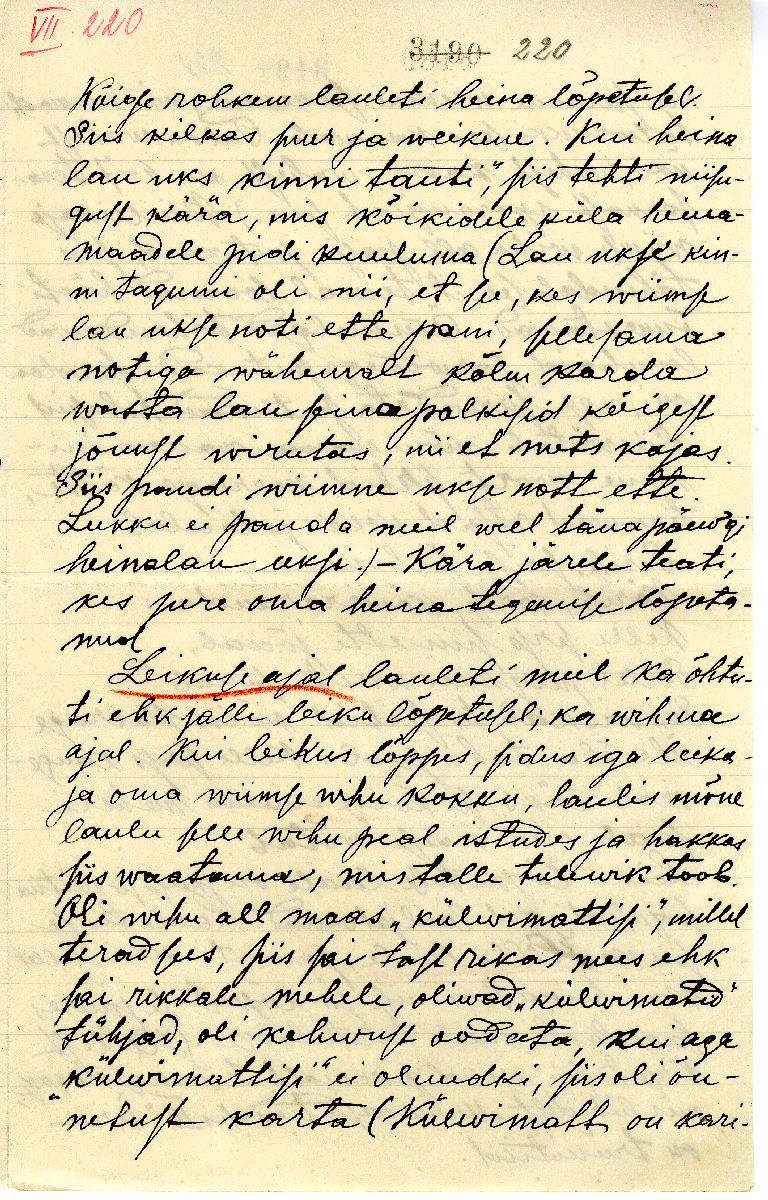 VII. 220
3190 220
Kõige rohkem lauleti heina lõpetusel.
Siis kilkas suur ja weikene. Kui heina
lau uks kinni tauti", siis tehti niisu-
gust kära, mis kõikidele küla heina-
maadele pidi kuulusma (Lau ukse kin-
ni tagumi oli nii, et se, kes wiimse
lau ukse noti ette pani, sellesama
notiga wähemalt kolm korda
wasta lau seina palkisid kõigest
jõuust wirutas, nii et mets kajas.
Siis pandi wiimne ukse nott ette.
Lukku ei panda meil weel täna päewagi
heinalau uksi.) – Kära järele teati,
kes pere oma heina tegemise lõpeta-
nud
Leikuse ajal lauleti meil ka õhtu-
ti ehk jälle leiku lõpetusel; ka wihma
ajal. Kui leikus lõppes, sidus iga leika-
ja oma wiimse wihu kokku, laulis mõne
laulu selle wihu peal istudes ja hakkas
siis waatama, mis talle tulewik toob.
Oli wihu all maas „külwimattisi", millel
terad sees, siis sai tast rikas mees ehk
sai rikkale mehele, oliwad „külwimatid"
tühjad, oli kehwust oodata, kui aga
„külwimattisi" ei olnudki, siis oli õn-
netust karta (Külwimatt on kari-